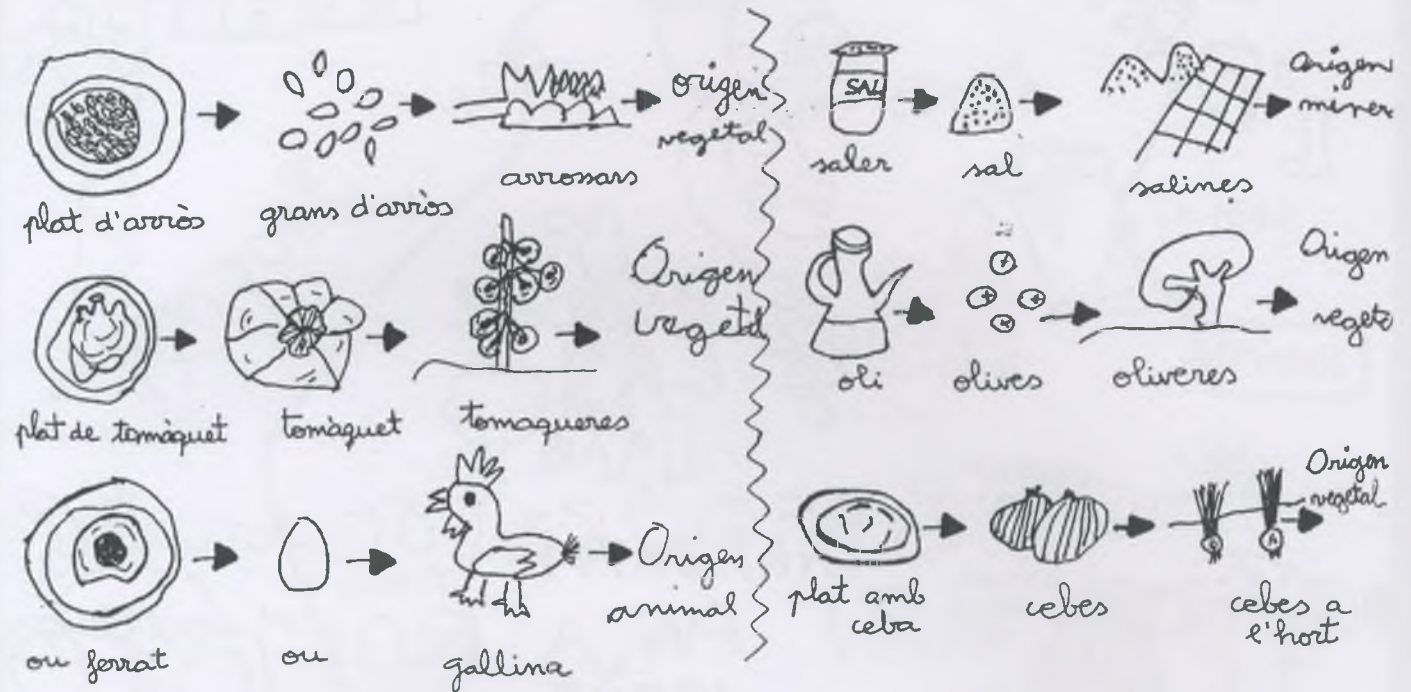 plat d'arròs
grans d'arròs
arrossars
origen
vegetal
plat de tomàquet
tomàquet
tomaqueres
Origen
vegetal
ou ferrat
ou
gallina
Origen
animal
SAL
saler
sal
salines
Origen
miner
oli
olives
oliveres
Origen
veget
plat amb
ceba
cebes
cebes a
l'hort
Origen
vegetal